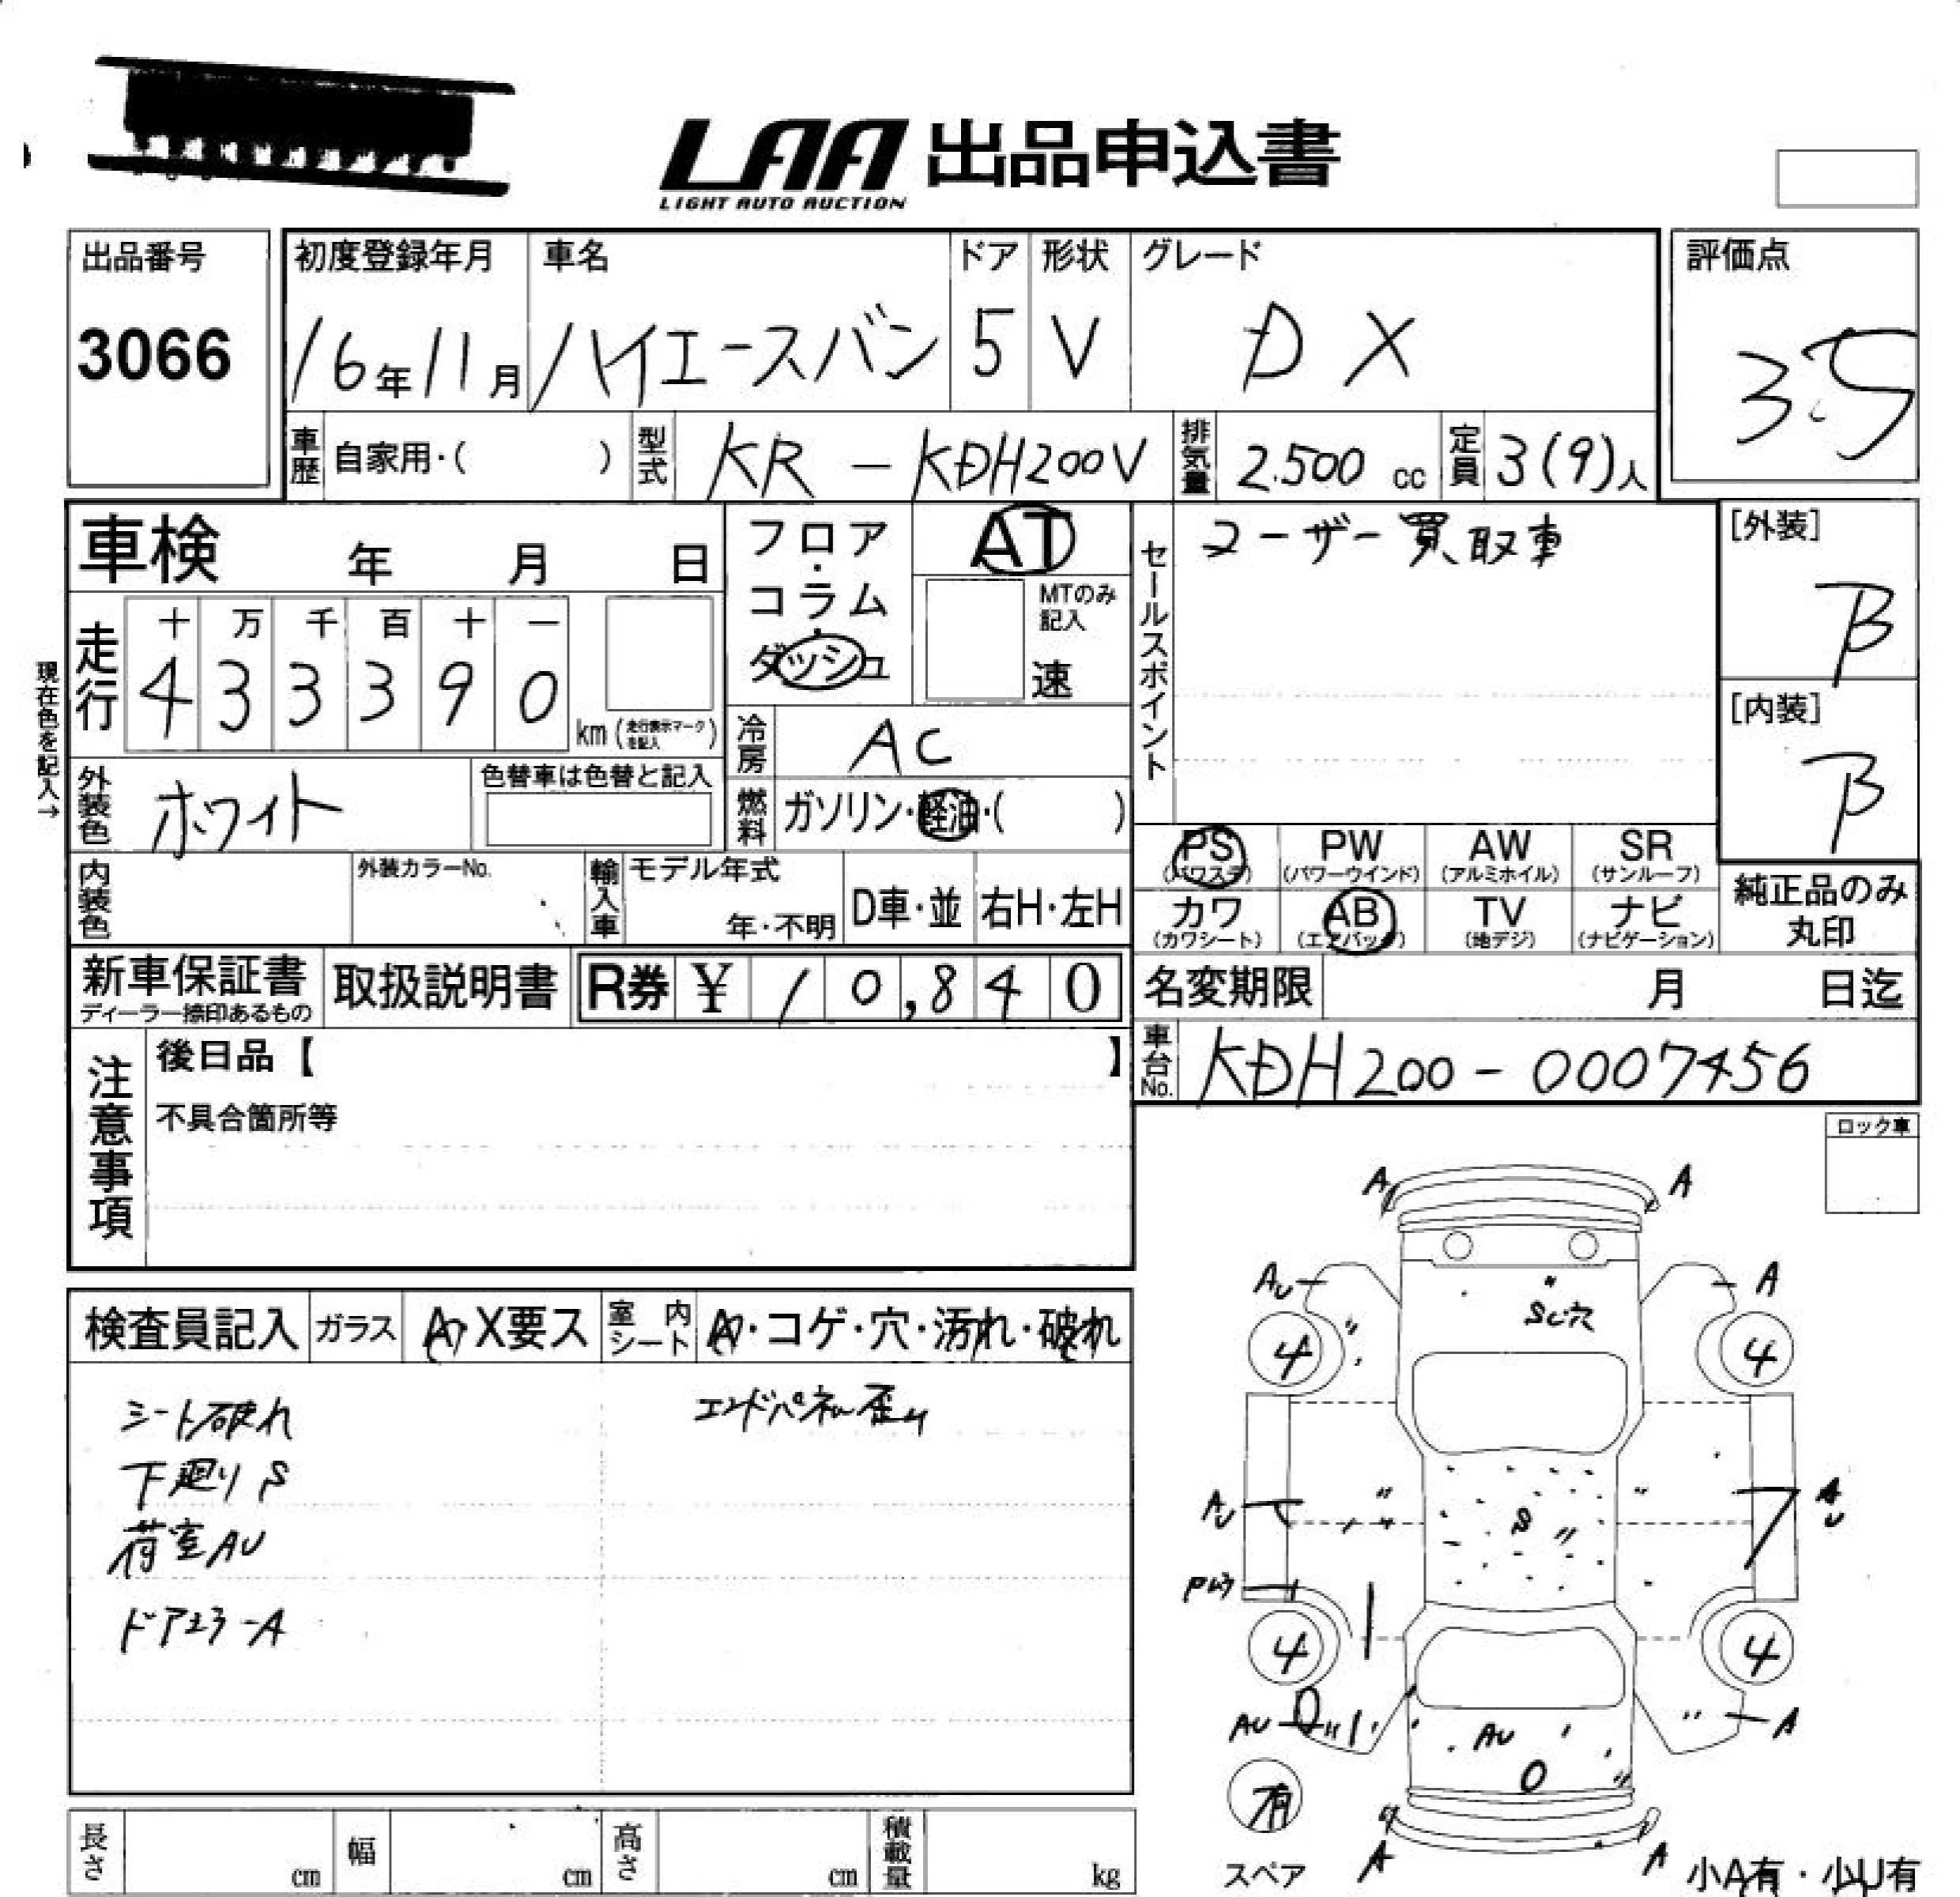 LAA 出品申込書
LIGHT AUTO AUCTION
出品番号
3066
初度登録年月
16年11月
車名
ハイエースバン
ドア
5
形状
V
グレード
DX
評価点
3.5
車歴 自家用・( )
型式 KR-KDH200V
排気量 2.500 cc
定員 3(9)人
車検 年 月 日
現在色を記入→
走行
十 万 千 百 十 一
4 3 3 3 9 0
km (走行表示マークを記入)
フロア・コラム・ダッシュ
AT
MTのみ記入
速
冷房 AC
燃料 ガソリン・軽油・( )
外装色 ホワイト
色替車は色替と記入
内装色
外装カラーNo.
輸入車
モデル年式
年・不明
D車・並
右H・左H
セールスポイント
ユーザー買取車
[外装]
B
[内装]
B
PS (パワステ)
PW (パワーウインド)
AW (アルミホイル)
SR (サンルーフ)
カワ (カワシート)
AB (エアバック)
TV (地デジ)
ナビ (ナビゲーション)
純正品のみ
丸印
新車保証書
ディーラー捺印あるもの
取扱説明書
R券 ¥ 10,840
名変期限 月 日迄
車台No. KDH200-0007456
注意事項
後日品【 】
不具合箇所等
ロック車
検査員記入
ガラス A・X要ス
室内シート A・コゲ・穴・汚れ・破れ
シート破れ
エンドパネル歪み
下廻りS
荷室AU
ドアミラーA
A A
AU A
SU穴
4 4
AU 〃 S 〃 〃 AU
4 4
AU AU 〃 A
有
スペア
A A
小A有・小U有
長さ cm
幅 cm
高さ cm
積載量 kg